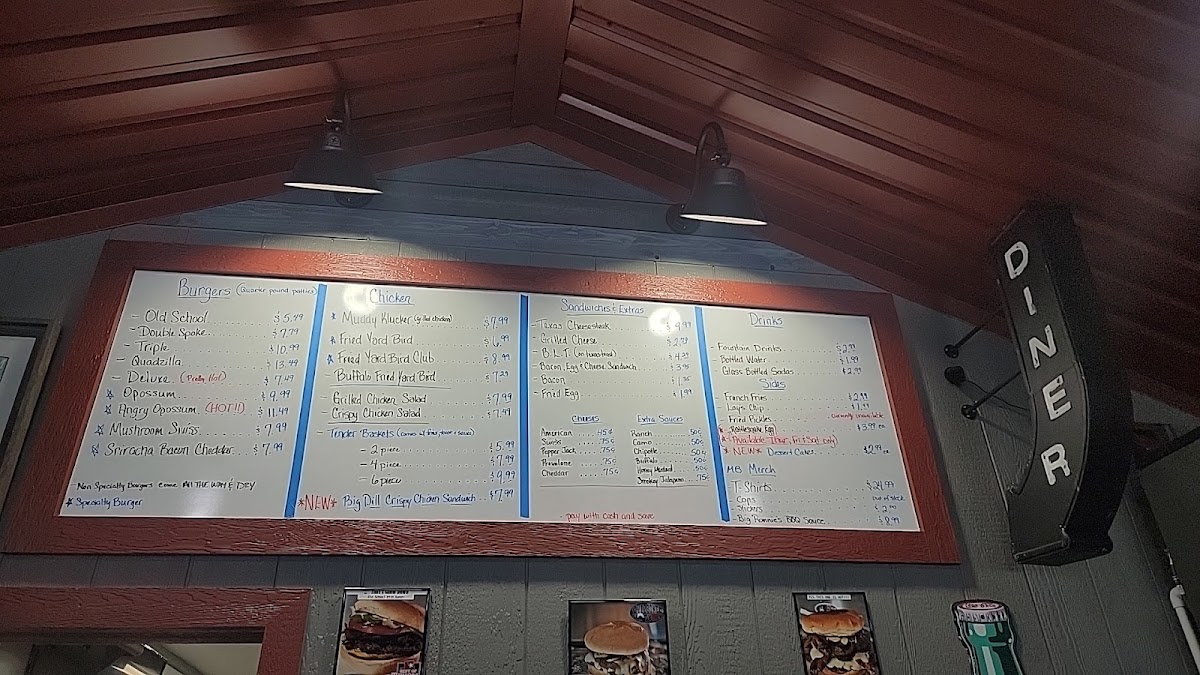 Burgers (Quarter pound patties)
- Old School ........ $5.49
- Double Spoke ........ $7.79
- Triple ........ $10.99
- Quadzilla ........ $13.49
- Deluxe (Pretty Hot) ........ $7.49
☆ Opossum ........ $9.99
☆ Angry Opossum (HOT!!) ........ $11.49
☆ Mushroom Swiss ........ $7.99
☆ Sriracha Bacon Chedder ........ $7.99
Non Specialty Burgers come ALL THE WAY & DRY
* Specialty Burger
Chicken
* Muddy Klucker (grilled chicken) $7.99
* Fried Yard Bird ........ $6.99
* Fried Yard Bird Club ........ $8.99
- Buffalo Fried Yard Bird ........ $7.29
- Grilled Chicken Salad ........ $7.99
- Crispy Chicken Salad ........ $7.99
- Tender Baskets
- 2 piece ........ $5.99
- 4 piece ........ $7.99
- 6 piece ........ $9.99
*NEW* Big Dill Crispy Chicken Sandwich .. $7.99
Sandwiches & Extras
- Texas Cheesesteak ........ $9.99
- Grilled Cheese ........ $2.79
- B.L.T. (on texas toast) ........
- Bacon, Egg & Cheese Sandwich ........
- Bacon ........
- Fried Egg ........ $1.99
Cheeses
American .... 45¢
Swiss .... 75¢
Pepper Jack .... 75¢
Provolone .... 75¢
Cheddar .... 75¢
Extra Sauces
Ranch .... 50¢
Camo .... 50¢
Chipotle .... 50¢
Buffalo .... 50¢
Honey Mustard .... 50¢
Smokey Jalapeno .. 75¢
- pay with cash and save
Drinks
- Fountain Drinks ........ $2.99
- Bottled Water ........ $1.99
- Glass Bottled Sodas ........ $2.99
Sides
- French Fries ........ $2.99
- Lays Chip ........ $1.99
- Fried Pickles ........ currently unavailable
* Rattlesnake Egg ........ $3.99 ea
* (Available Thur, Fri & Sat only)
* NEW * Dessert Cakes ........ $2.99 ea
MB Merch
- T Shirts ........ $24.99
- Caps ........ out of stock
- Stickers ........
- Big Ronnie's BBQ Sauce ........ $8.99
DINER